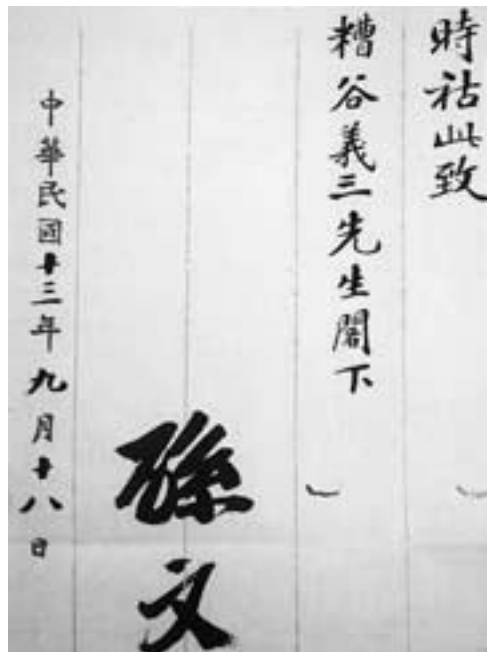 時祜此致
糟谷義三先生閣下
孫文
中華民國十三年九月十八日